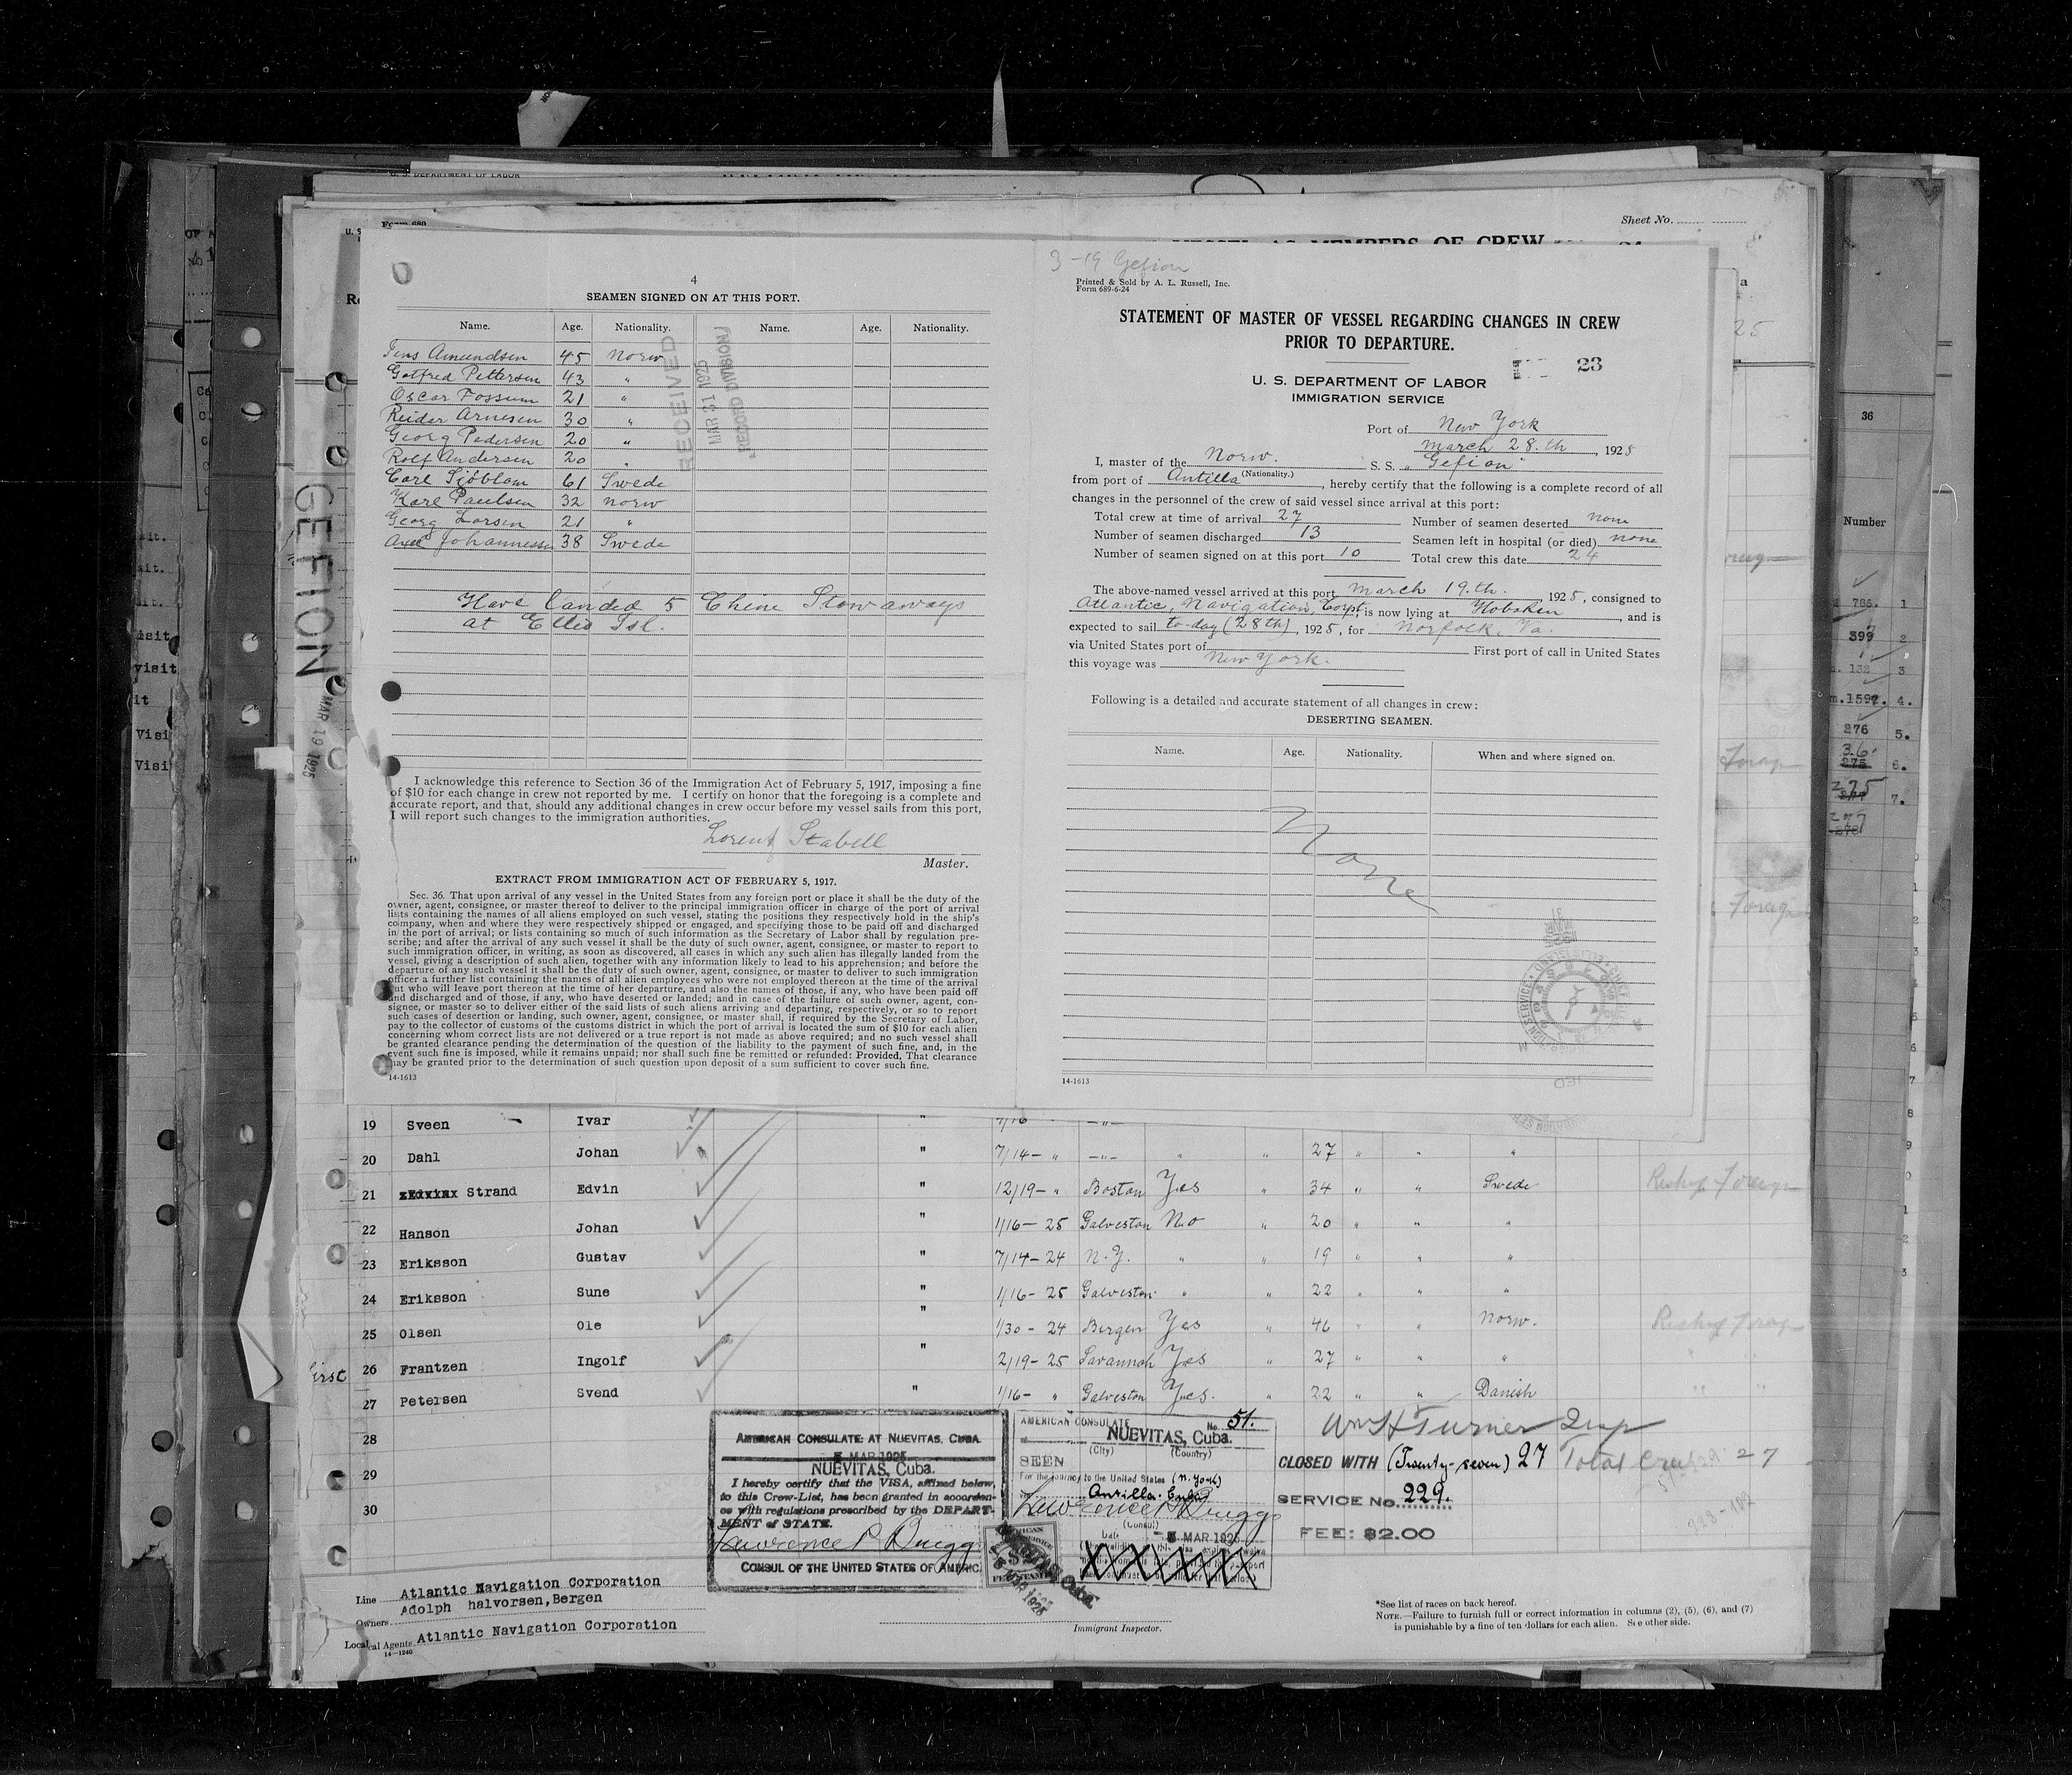 U. S. DEPARTMENT OF LABOR
Sheet No.
Form 680
3-19 Gefion
4
SEAMEN SIGNED ON AT THIS PORT.
Name. Age. Nationality. Name. Age. Nationality.
Jens Amundsen 45 Norw
Gotfred Pettersen 43 "
Oscar Fossum 21 "
Reidar Arnesen 30 "
Georg Pedersen 20 "
Rolf Andersen 20 "
Carl Sjöblom 61 Swede
Karl Paulsen 32 norw
Georg Larsen 21 "
Axel Johannessen 38 Swede
Have landed 5 Chine Stowaways
at Ellis Isl.
RECEIVED
MAR 31 1925
RECORD DIVISION
GEFION
MAR 19 1925
I acknowledge this reference to Section 36 of the Immigration Act of February 5, 1917, imposing a fine
of $10 for each change in crew not reported by me. I certify on honor that the foregoing is a complete and
accurate report, and that, should any additional changes in crew occur before my vessel sails from this port,
I will report such changes to the immigration authorities.
Lorentz Stabell
Master.
EXTRACT FROM IMMIGRATION ACT OF FEBRUARY 5, 1917.
Sec. 36. That upon arrival of any vessel in the United States from any foreign port or place it shall be the duty of the
owner, agent, consignee, or master thereof to deliver to the principal immigration officer in charge of the port of arrival
lists containing the names of all aliens employed on such vessel, stating the positions they respectively hold in the ship's
company, when and where they were respectively shipped or engaged, and specifying those to be paid off and discharged
in the port of arrival; or lists containing so much of such information as the Secretary of Labor shall by regulation pre-
scribe; and after the arrival of any such vessel it shall be the duty of such owner, agent, consignee, or master to report to
such immigration officer, in writing, as soon as discovered, all cases in which any such alien has illegally landed from the
vessel, giving a description of such alien, together with any information likely to lead to his apprehension; and before the
departure of any such vessel it shall be the duty of such owner, agent, consignee, or master to deliver to such immigration
officer a further list containing the names of all alien employees who were not employed thereon at the time of the arrival
but who will leave port thereon at the time of her departure, and also the names of those, if any, who have been paid off
and discharged and of those, if any, who have deserted or landed; and in case of the failure of such owner, agent, con-
signee, or master so to deliver either of the said lists of such aliens arriving and departing, respectively, or so to report
such cases of desertion or landing, such owner, agent, consignee, or master shall, if required by the Secretary of Labor,
pay to the collector of customs of the customs district in which the port of arrival is located the sum of $10 for each alien
concerning whom correct lists are not delivered or a true report is not made as above required; and no such vessel shall
be granted clearance pending the determination of the question of the liability to the payment of such fine, and, in the
event such fine is imposed, while it remains unpaid; nor shall such fine be remitted or refunded: Provided, That clearance
may be granted prior to the determination of such question upon deposit of a sum sufficient to cover such fine.
14-1613
Printed & Sold by A. L. Russell, Inc.
Form 689-6-24
STATEMENT OF MASTER OF VESSEL REGARDING CHANGES IN CREW
PRIOR TO DEPARTURE.
23
U. S. DEPARTMENT OF LABOR
IMMIGRATION SERVICE
Port of New York
March 28.th, 1925
I, master of the Norw. S. S. "Gefion"
(Nationality.)
from port of Antilla, hereby certify that the following is a complete record of all
changes in the personnel of the crew of said vessel since arrival at this port:
Total crew at time of arrival 27 Number of seamen deserted none
Number of seamen discharged 13 Seamen left in hospital (or died) none
Number of seamen signed on at this port 10 Total crew this date 24
The above-named vessel arrived at this port March 19.th. 1925, consigned to
Atlantic, Navigation, Corpt; is now lying at Hoboken, and is
expected to sail to-day (28th), 1925, for Norfolk, Va.
via United States port of First port of call in United States
this voyage was New York.
Following is a detailed and accurate statement of all changes in crew:
DESERTING SEAMEN.
Name. Age. Nationality. When and where signed on.
None
14-1613
36
Number
786. 1
399 2
132 3
1597. 4.
276 5.
36. 6.
275 7.
277
19 Sveen Ivar "
20 Dahl Johan " 7/14- " -"- " " 27 " " "
21 Strand Edvin " 12/19- " Boston Yes " 34 " " Swede Reship Foreign
22 Hanson Johan " 1/16- 25 Galveston No " 20 " " "
23 Eriksson Gustav " 7/14- 24 N.Y. " " 19 " " "
24 Eriksson Sune " 1/16- 25 Galveston " " 22 " " "
25 Olsen Ole " 1/30 - 24 Bergen Yes " 46 " " Norw. Reship Foreign
26 Frantzen Ingolf " 2/19- 25 Savannah Yes " 27 " " "
27 Petersen Svend " 1/16- " Galveston Yes. " 22 " " Danish
28
29
30
first
AMERICAN CONSULATE AT NUEVITAS, CUBA
5 MAR 1925
NUEVITAS, Cuba.
I hereby certify that the VISA, affixed below,
to this Crew-List, has been granted in accordan-
ce with regulations prescribed by the DEPART-
MENT of STATE.
Lawrence P Briggs
CONSUL OF THE UNITED STATES OF AMERICA
AMERICAN CONSULATE No. 51.
NUEVITAS, Cuba.
(City) (Country)
SEEN
For the journey to the United States (N. York)
Antilla. Cuba
Lawrence P Briggs
(Consul)
Date 5 MAR 1925
Wm H Turner Insp
CLOSED WITH (Twenty-seven) 27 Total Crew 27
SERVICE No. 229.
FEE: $2.00
Line Atlantic Navigation Corporation
Owners Adolph halvorsen, Bergen
Local Agents Atlantic Navigation Corporation
14-1240
Immigrant Inspector.
*See list of races on back hereof.
NOTE.—Failure to furnish full or correct information in columns (2), (5), (6), and (7)
is punishable by a fine of ten dollars for each alien. See other side.